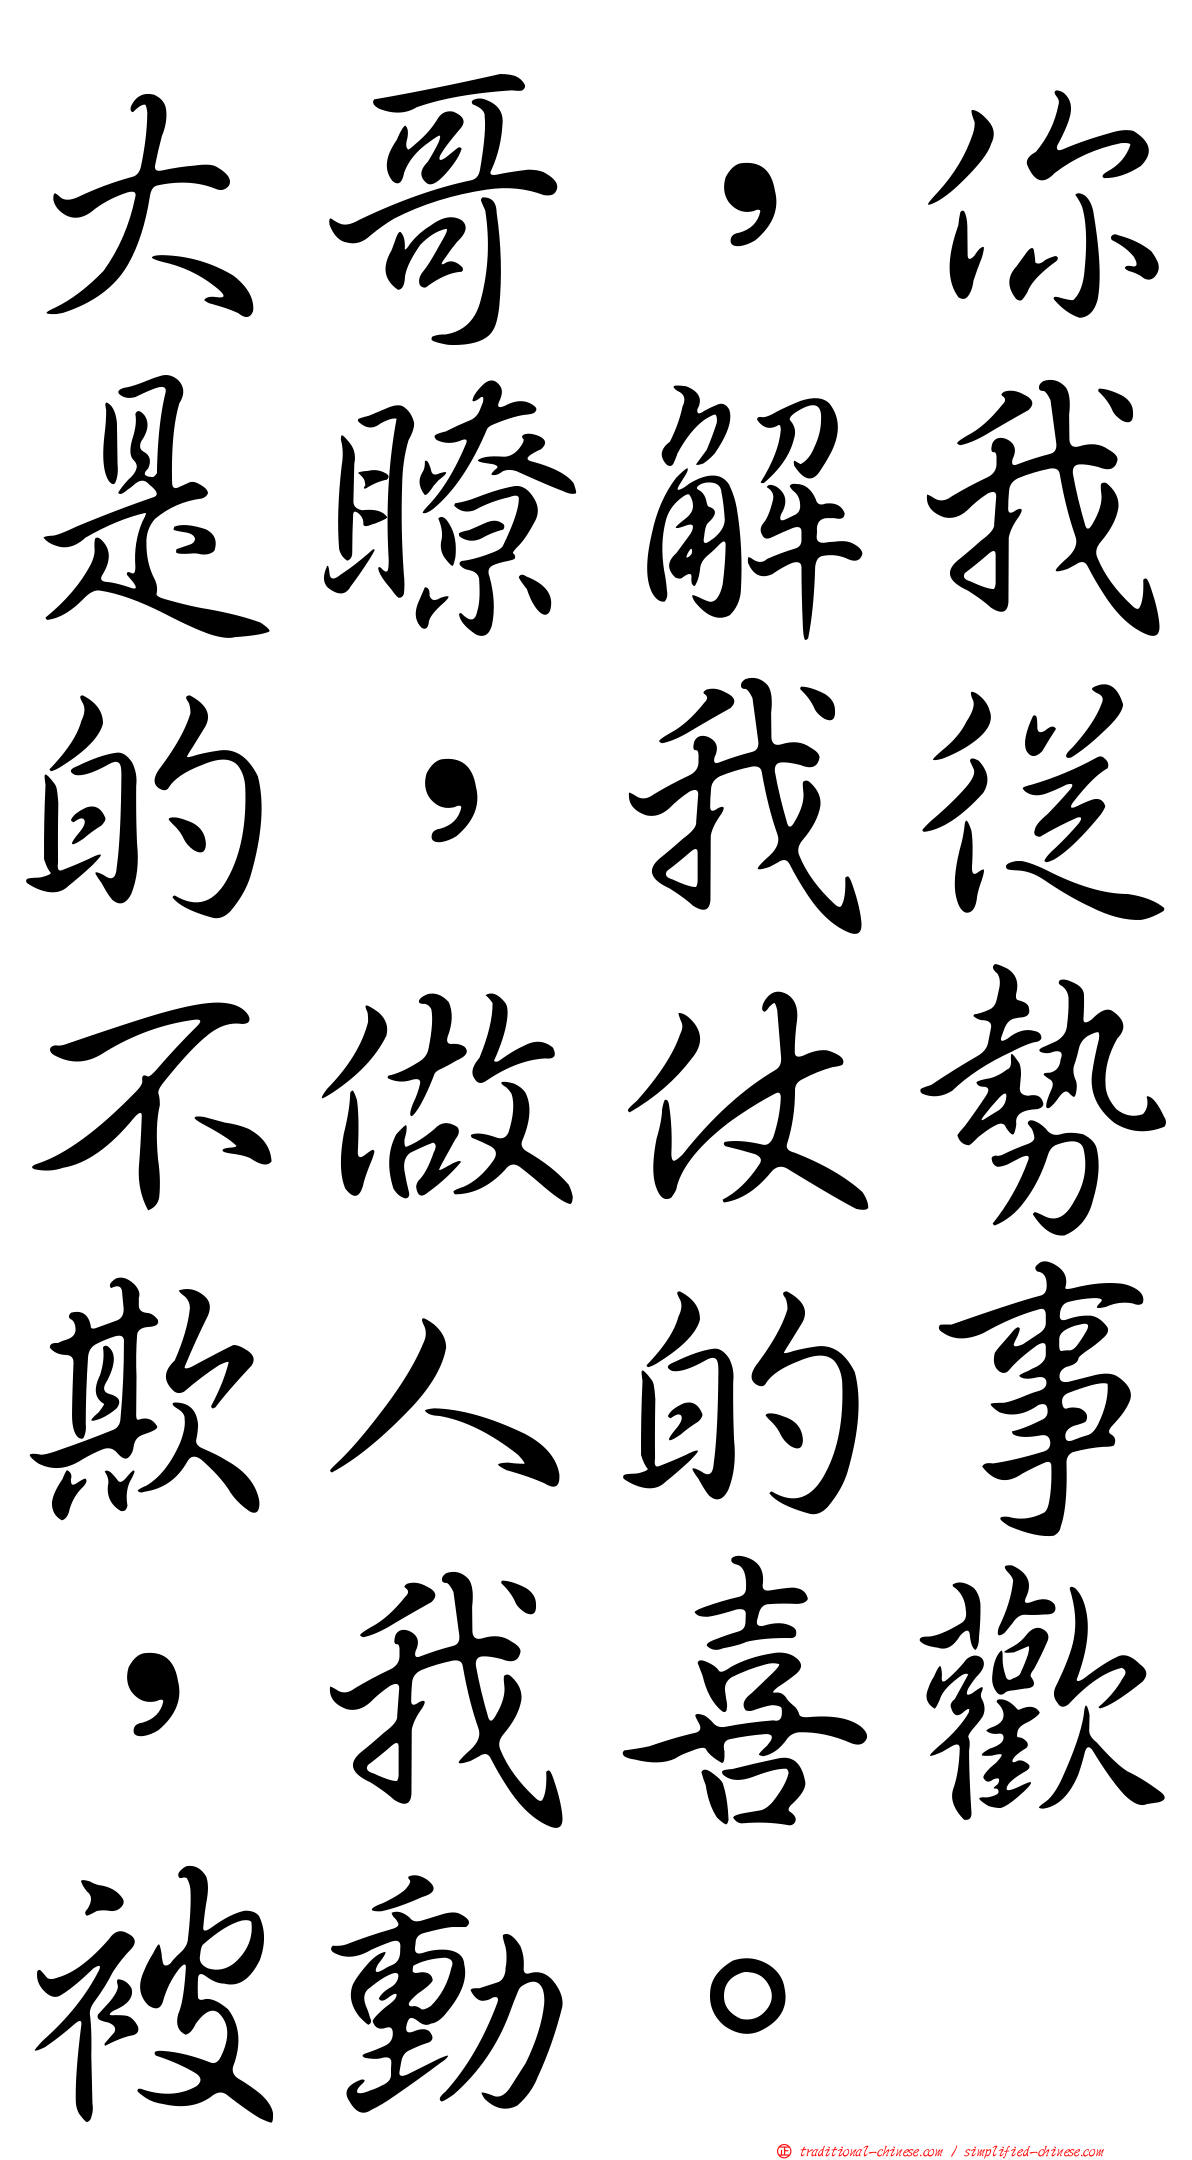 大哥，你
是瞭解我
的，我從
不做仗勢
欺人的事
，我喜歡
被動。
正 traditional-chinese.com / simplified-chinese.com